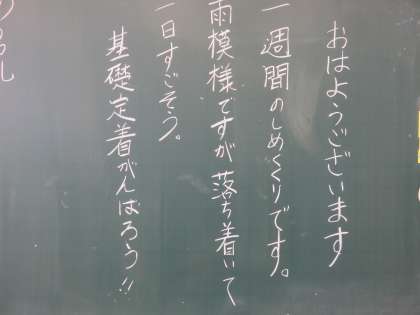 おはようございます
一週間のしめくくりです。
雨模様ですが落ち着いて
一日すごそう。
基礎定着がんばろう!!